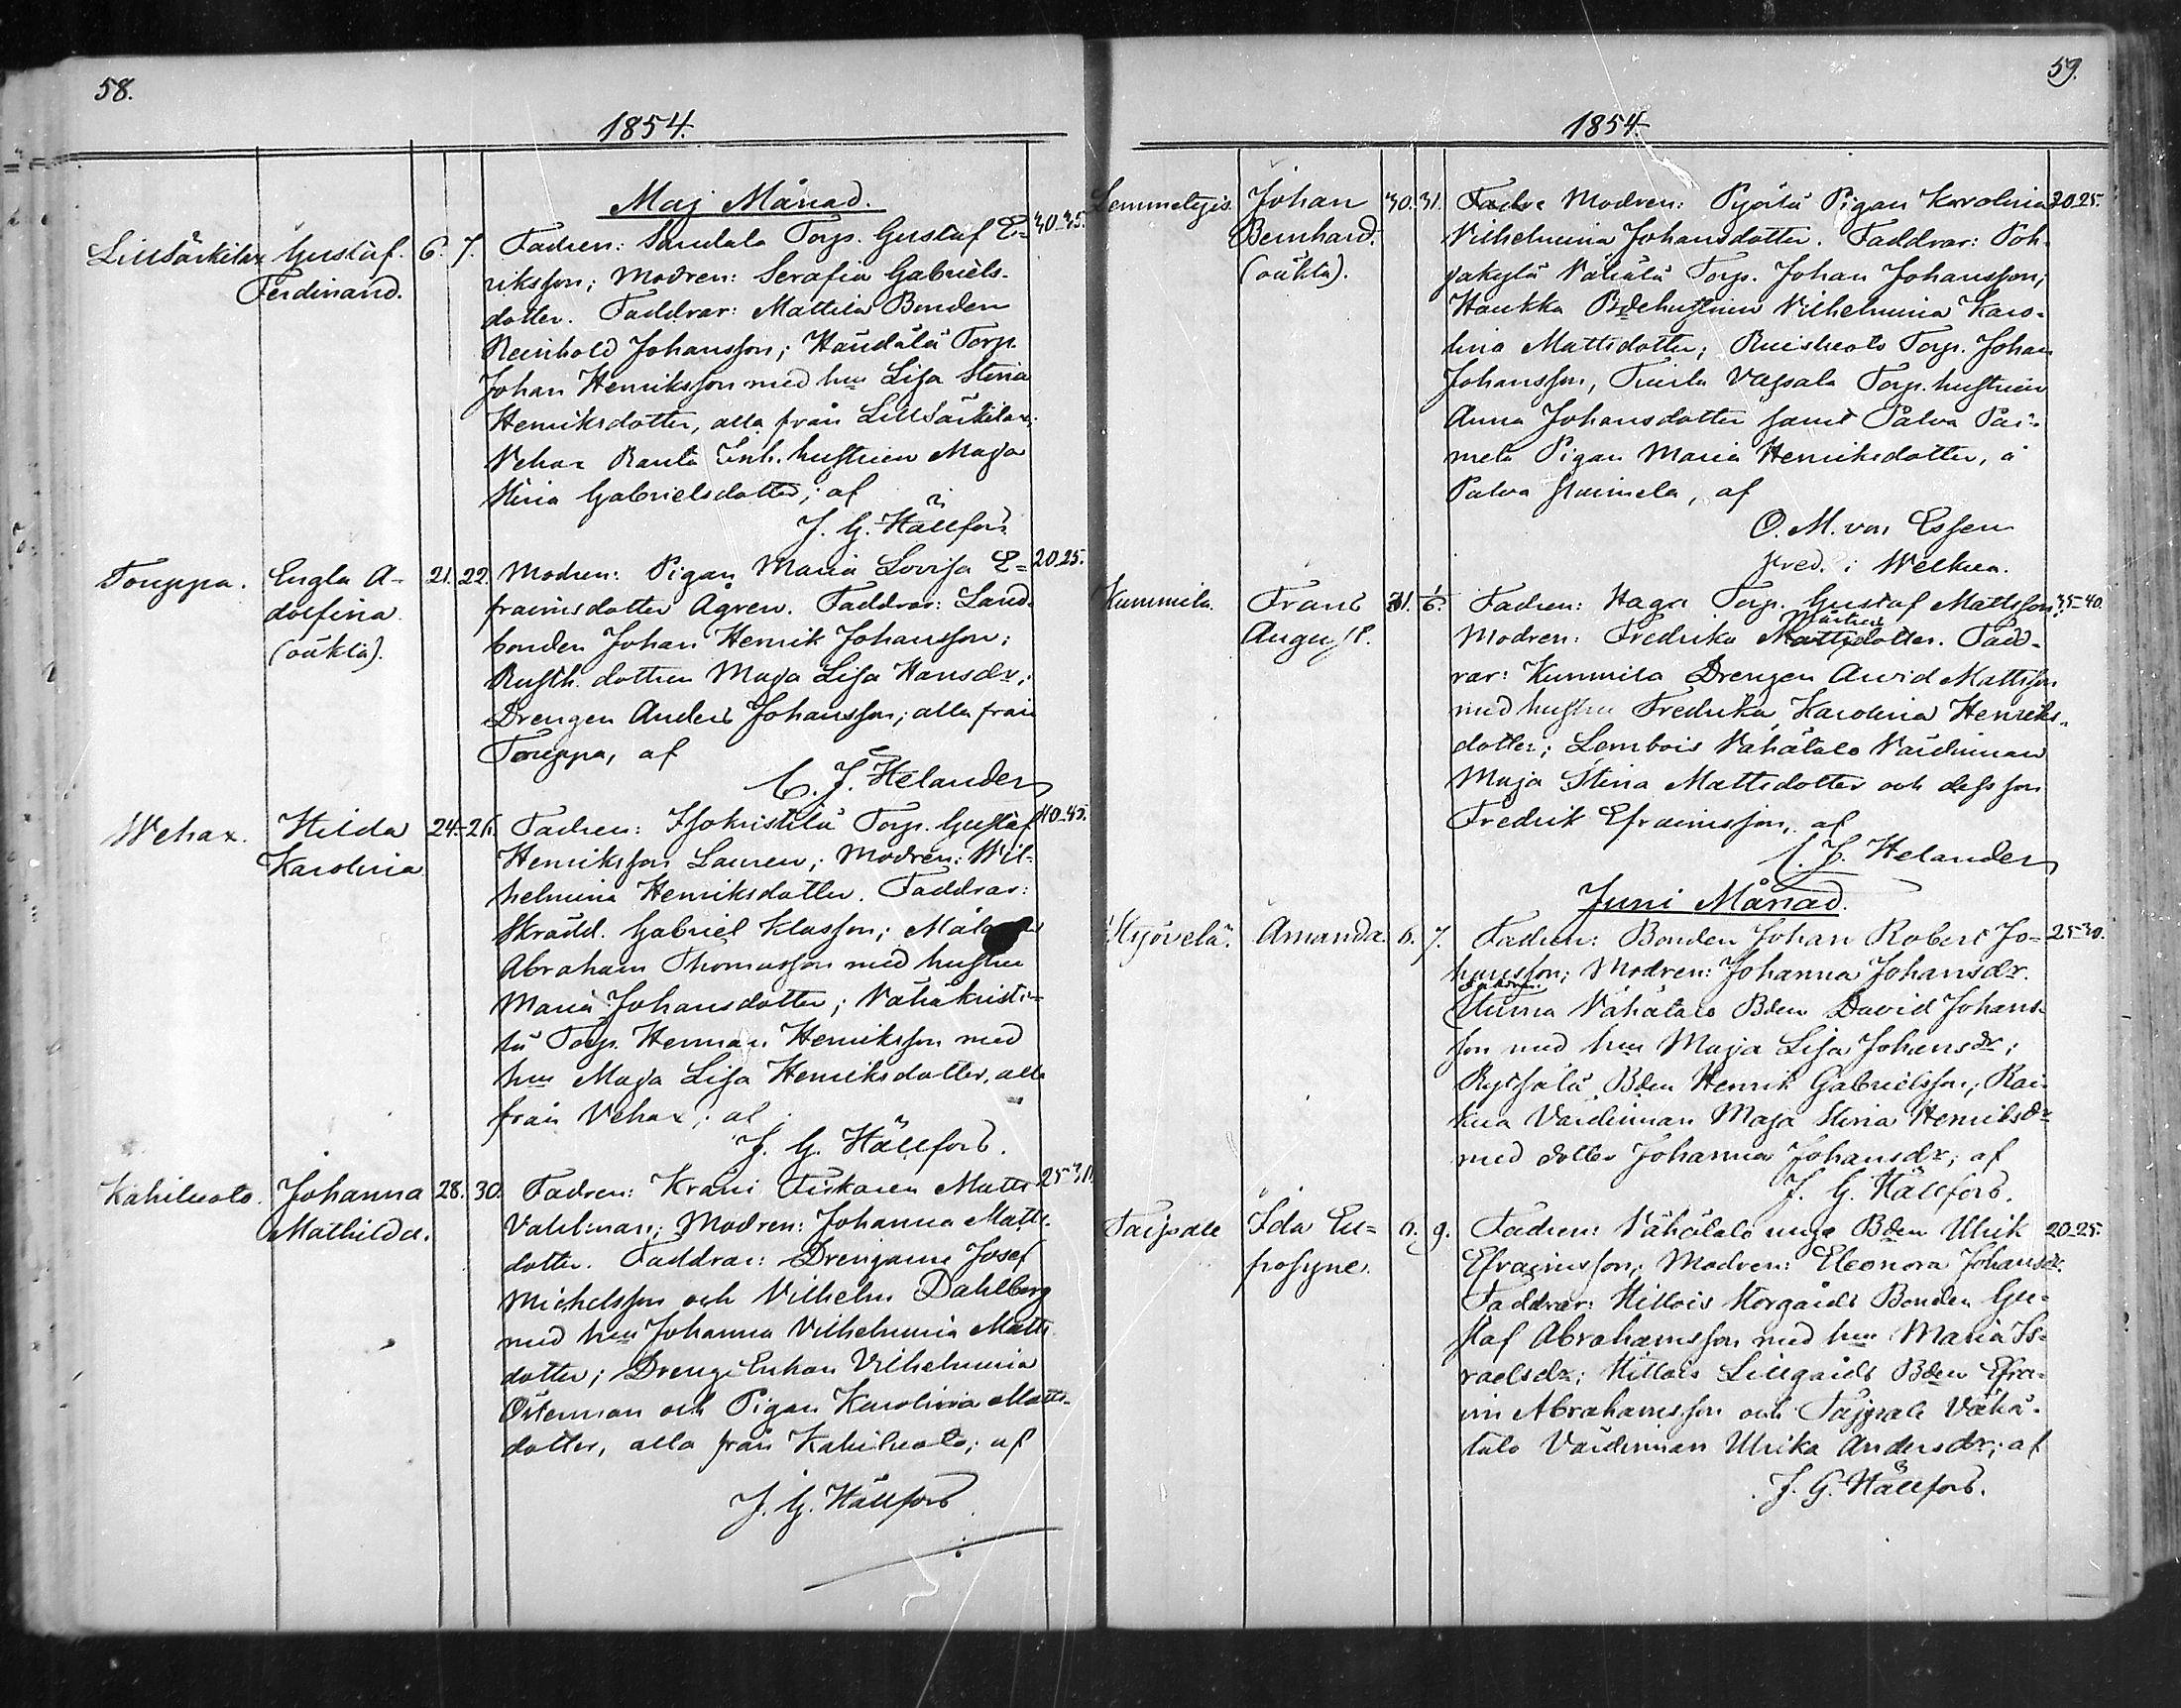 58.
1854.
Maj Månad.
Lillsärkilax Gustaf. 6. 7. Fadren: Sandala Torp. Gustaf E= 30-35.
Ferdinand. riksson; Modren: Serafia Gabriels-
dotter. Faddrar: Mattila Bonden
Reinhold Johansson; Torp.
Johan Henriksson med hun Lisa Stina
Henriksdotter, alla från Lillsärkilax;
Vehax Ranta Inh. hustrun Maja
Stina Gabrielsdotter; af
J. G. Hällfors.
Touppa. Engla A- 21. 22. Modren: Pigan Maria Lovisa E= 20.25.
dolfina fraimsdotter Ågren. Faddrar: Land-
(oäkta). bonden Johan Henrik Johansson;
Rusth. dottren Maja Lisa Hansdr;
Drengen Anders Johansson; alla från
Touppa, af
C. J. Helander
Wehax. Hilda 24. 26. Fadren: Isokristilä Torp. Gustaf 40-45.
Karolina Henriksson Lauren; Modren: Wil-
helmina Henriksdotter. Faddrar:
Skrädd. Gabriel Klasson;
Abraham Thomasson med hustru
Maria Johansdotter; Vähäkristi-
lä Torp. Herman Henriksson med
hun Maja Lisa Henriksdotter, alla
från Vehax; af
J. G. Hällfors.
Kahiluoto. Johanna 28. 30. Fadren: Krani Fiskaren Matts 25-30.
Mathilda. Vahlman; Modren: Johanna Matts-
dotter. Faddrar: Drengarne Josef
Michelsson och Vilhelm Dahlberg
med hun Johanna Vilhelmina Matts-
dotter; Dreng Enkan Vilhelmina
Österman och Pigan Karolina Matts-
dotter, alla från Kahiluoto; af
J. G. Hällfors
59.
1854.
Lemmetyis. Johan 30. 31. Modren: Pyöлä Pigan Karolina 20.25.
Bernhard. Vilhelmina Johansdotter. Faddrar: Poh-
(oäkta). jakylä Vähälä Torp. Johan Johansson;
Haukka Bdehustrun Vilhelmina Karo-
lina Mattsdotter; Ruisluoto Torp. Johan
Johansson, Tuirla Vassala Torp. hustrun
Anna Johansdotter samt Palva Pai-
mela Pigan Maria Henriksdotter, å
Palva Paimela, af
O. M. von Essen
pred. i Welkua.
Kummila. Frans 31. 6. Fadren: Haga Torp. Gustaf Mattsson; 35-40.
August. Modren: Fredrika Mattsdotter. Fadd-
rar: Kummila Drengen Arvid Mattsson
med hustru Fredrika Karolina Henriks-
dotter; Lembois Vähätalo Värdinnan
Maja Stina Mattsdotter och dess son
Fredrik Efraimsson, af
C. J. Helander
Juni Månad.
Hyövelä. Amanda. 6. 7. Fadren: Bonden Johan Robert Jo- 25-30.
hansson; Modren: Johanna Johansdr.
Vähätalo Bden David Johans-
son med hun Maja Lisa Johansdr;
Bden Henrik Gabrielsson; Rai-
kua Värdinnan Maja Stina Henriksdr
med dotter Johanna Johansdr; af
J. G. Hällfors.
Taipale Ida Eu= 6. 9. Fadren: Vähätalo unge Bden Ulrik 20-25.
frosyne. Efraimsson; Modren: Eleonora Johansdr.
Faddrar: Hillois Storgårds Bonden Gu-
staf Abrahamsson med hun Maria Is-
raelsdr; Hillois Lillgårds Bden Efra-
im Abrahamsson och Taipale Vähä-
talo Värdinnan Ulrika Andersdr; af
J. G. Hällfors.